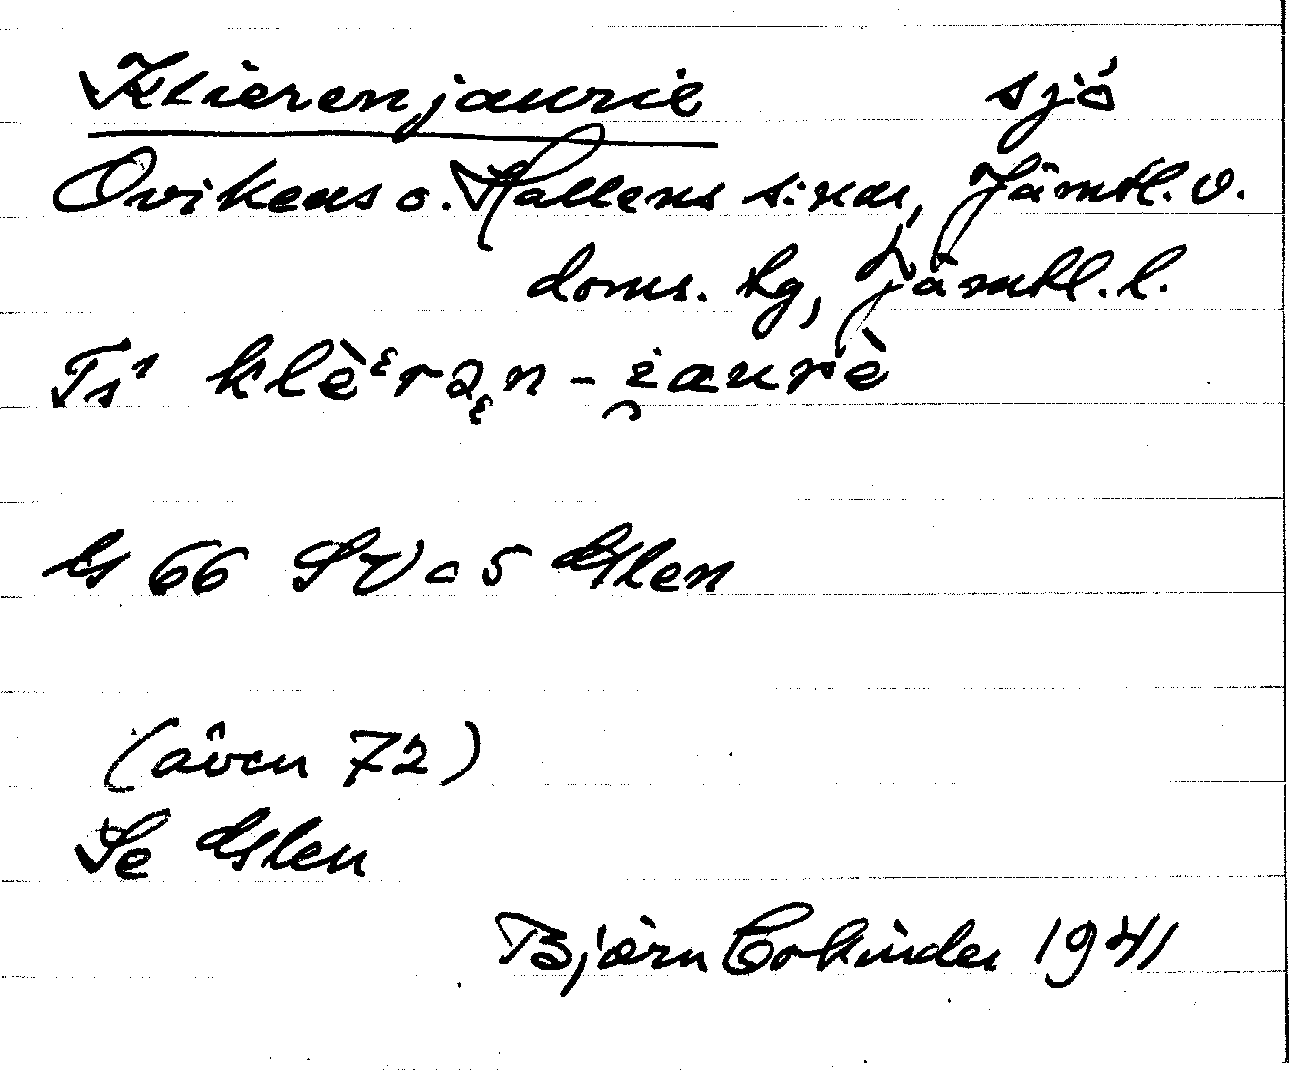 Klierenjaurie sjö
Ovikens o. Hallens s:nar, Jämtl. v.
doms. tg, Jämtl. l.
Ts¹ klèᵋrən - i̯aurè
Gs 66 SV o S Glen
(även 72)
Se Glen
Björn Collinder 1941